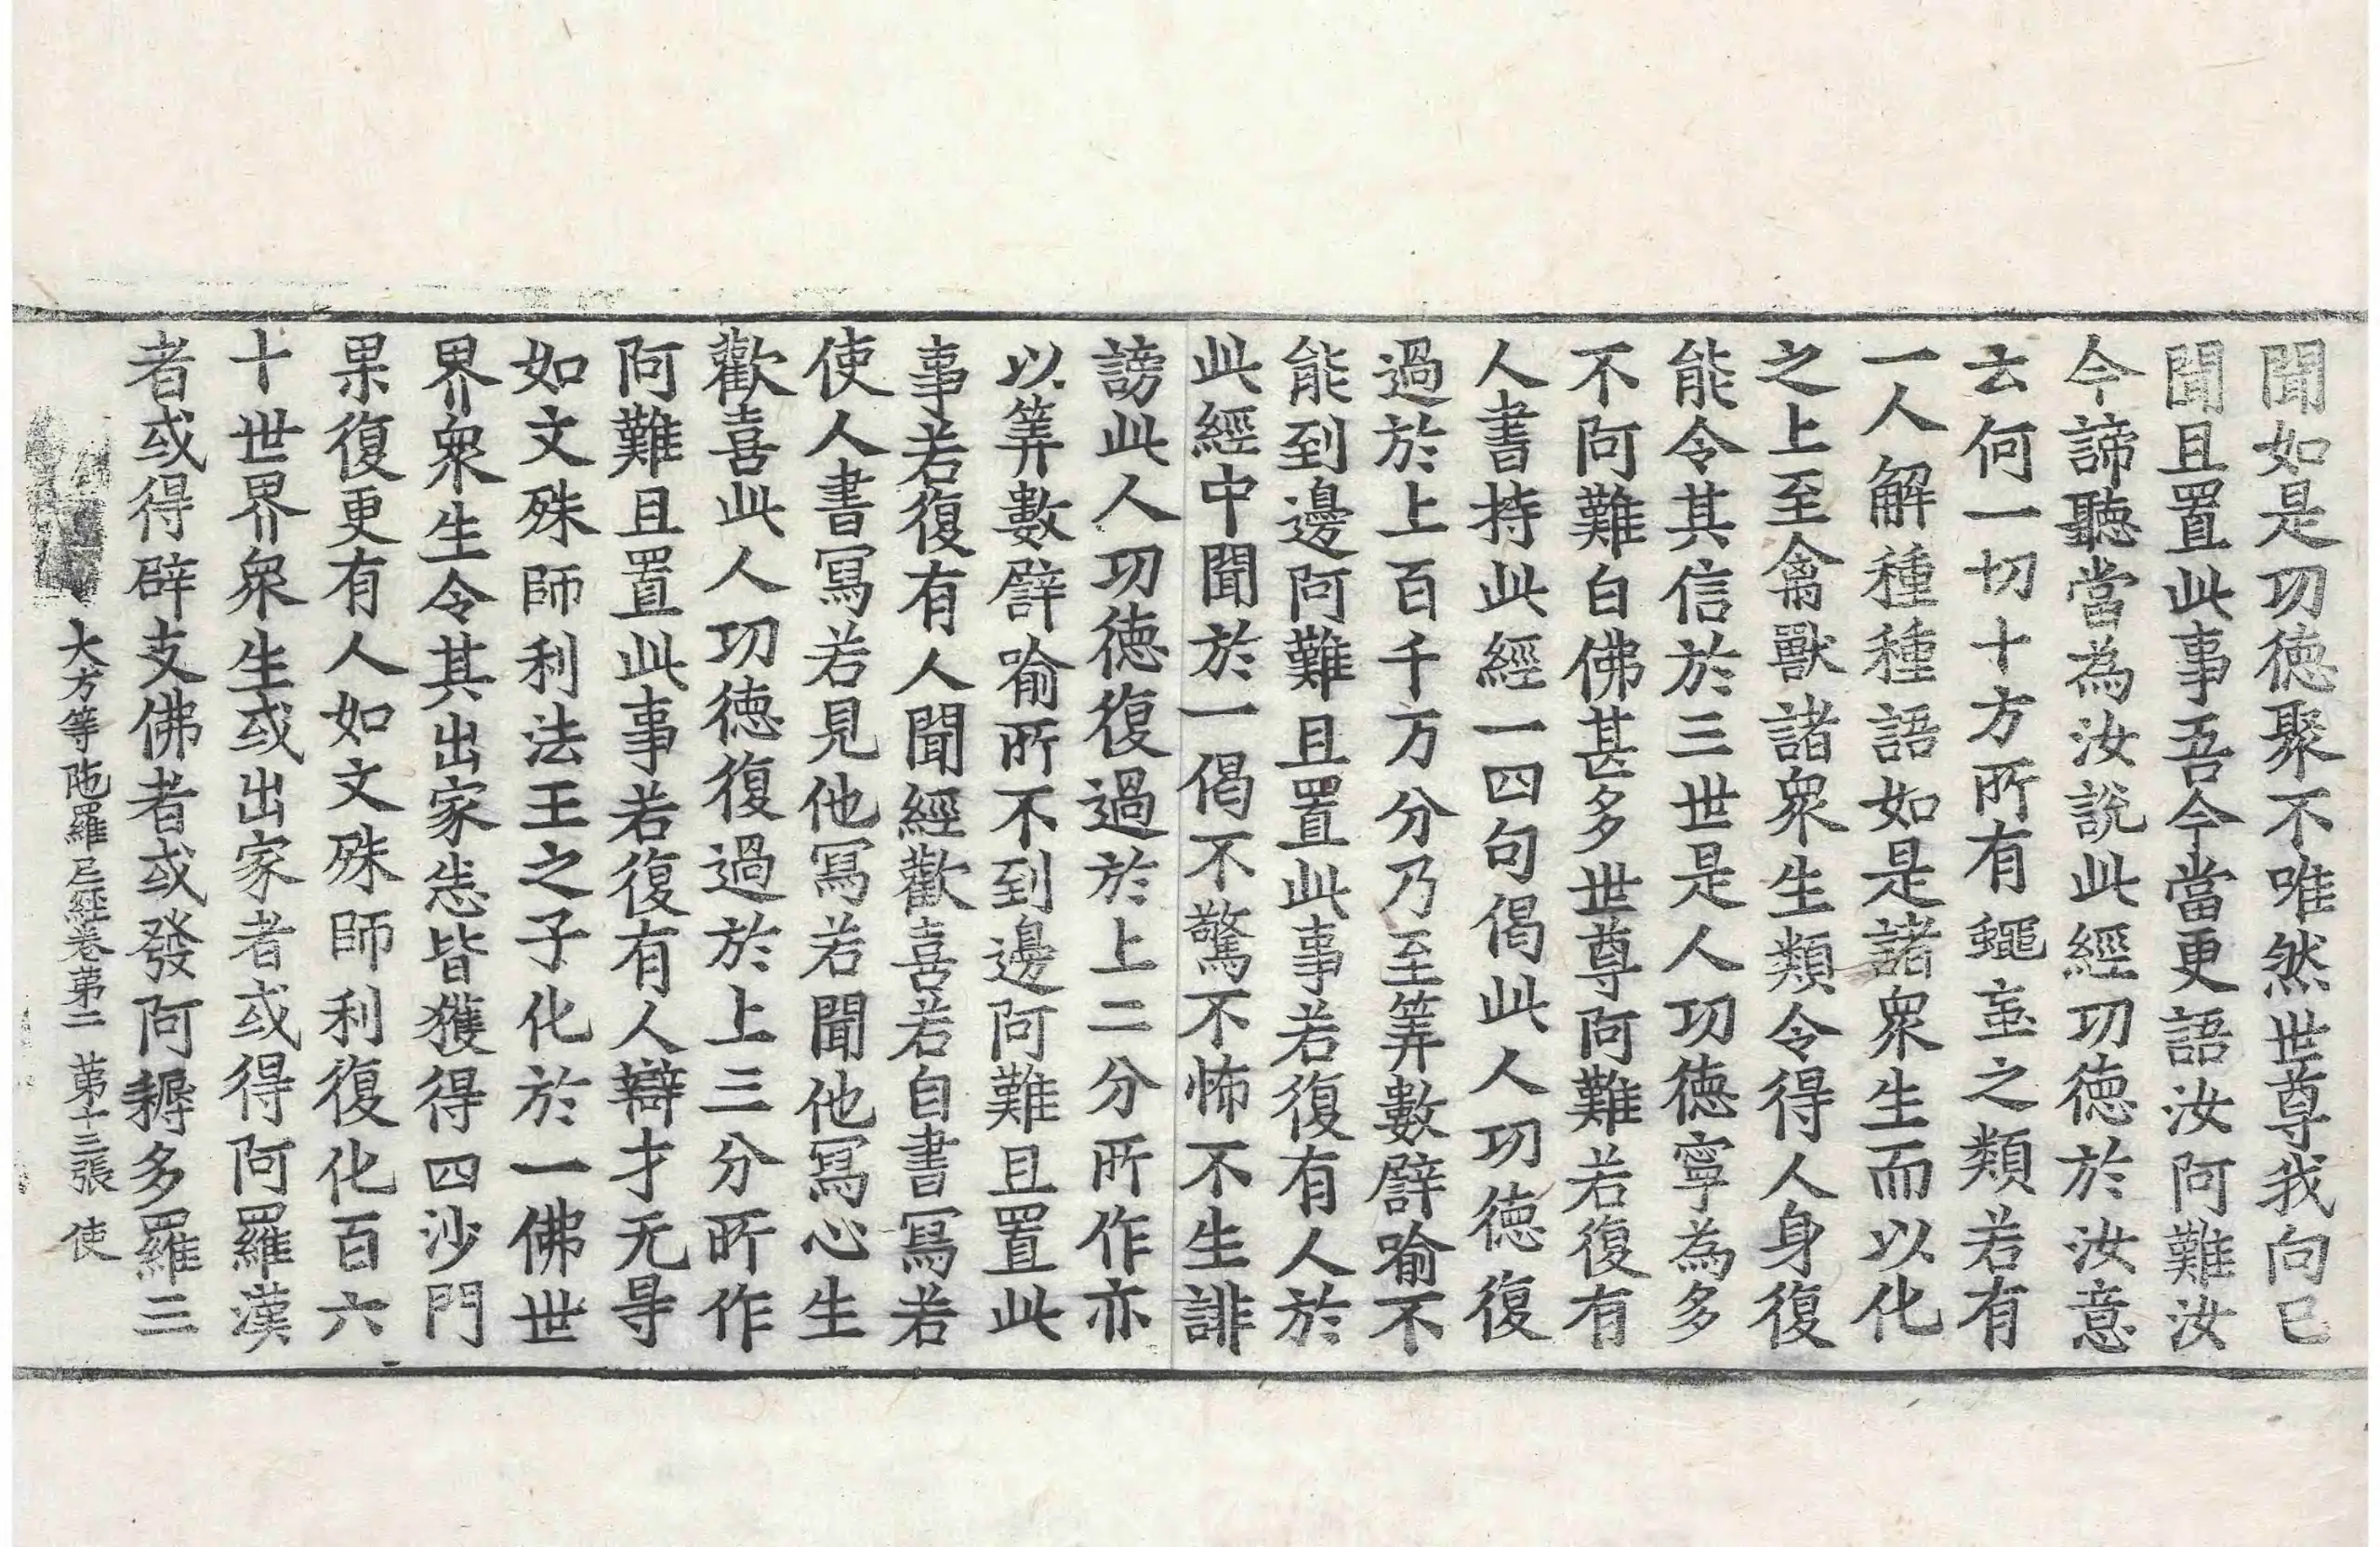 聞如是功徳聚不唯然世尊我向已
聞且置此事吾今當更語汝阿難汝
今諦聽當為汝說此經功徳於汝意
云何一切十方所有蠅䖟之類若有
一人解種種語如是諸衆生而以化
之上至禽獸諸衆生類令得人身復
能令其信於三世是人功徳寧為多
不阿難白佛甚多世尊阿難若復有
人書持此經一四句偈此人功徳復
過於上百千万分乃至筭數譬喻不
能到邊阿難且置此事若復有人於
此經中聞於一偈不驚不怖不生誹
謗此人功徳復過於上二分所作亦
以筭數譬喻所不到邊阿難且置此
事若復有人聞經歡喜若自書寫若
使人書寫若見他寫若聞他寫心生
歡喜此人功徳復過於上三分所作
阿難且置此事若復有人辯才无㝵
如文殊師利法王之子化於一佛世
界衆生令其出家悉皆獲得四沙門
果復更有人如文殊師利復化百六
十世界衆生或出家者或得阿羅漢
者或得辟支佛者或發阿耨多羅三
大方等陁羅尼經卷苐二 苐十三張 使